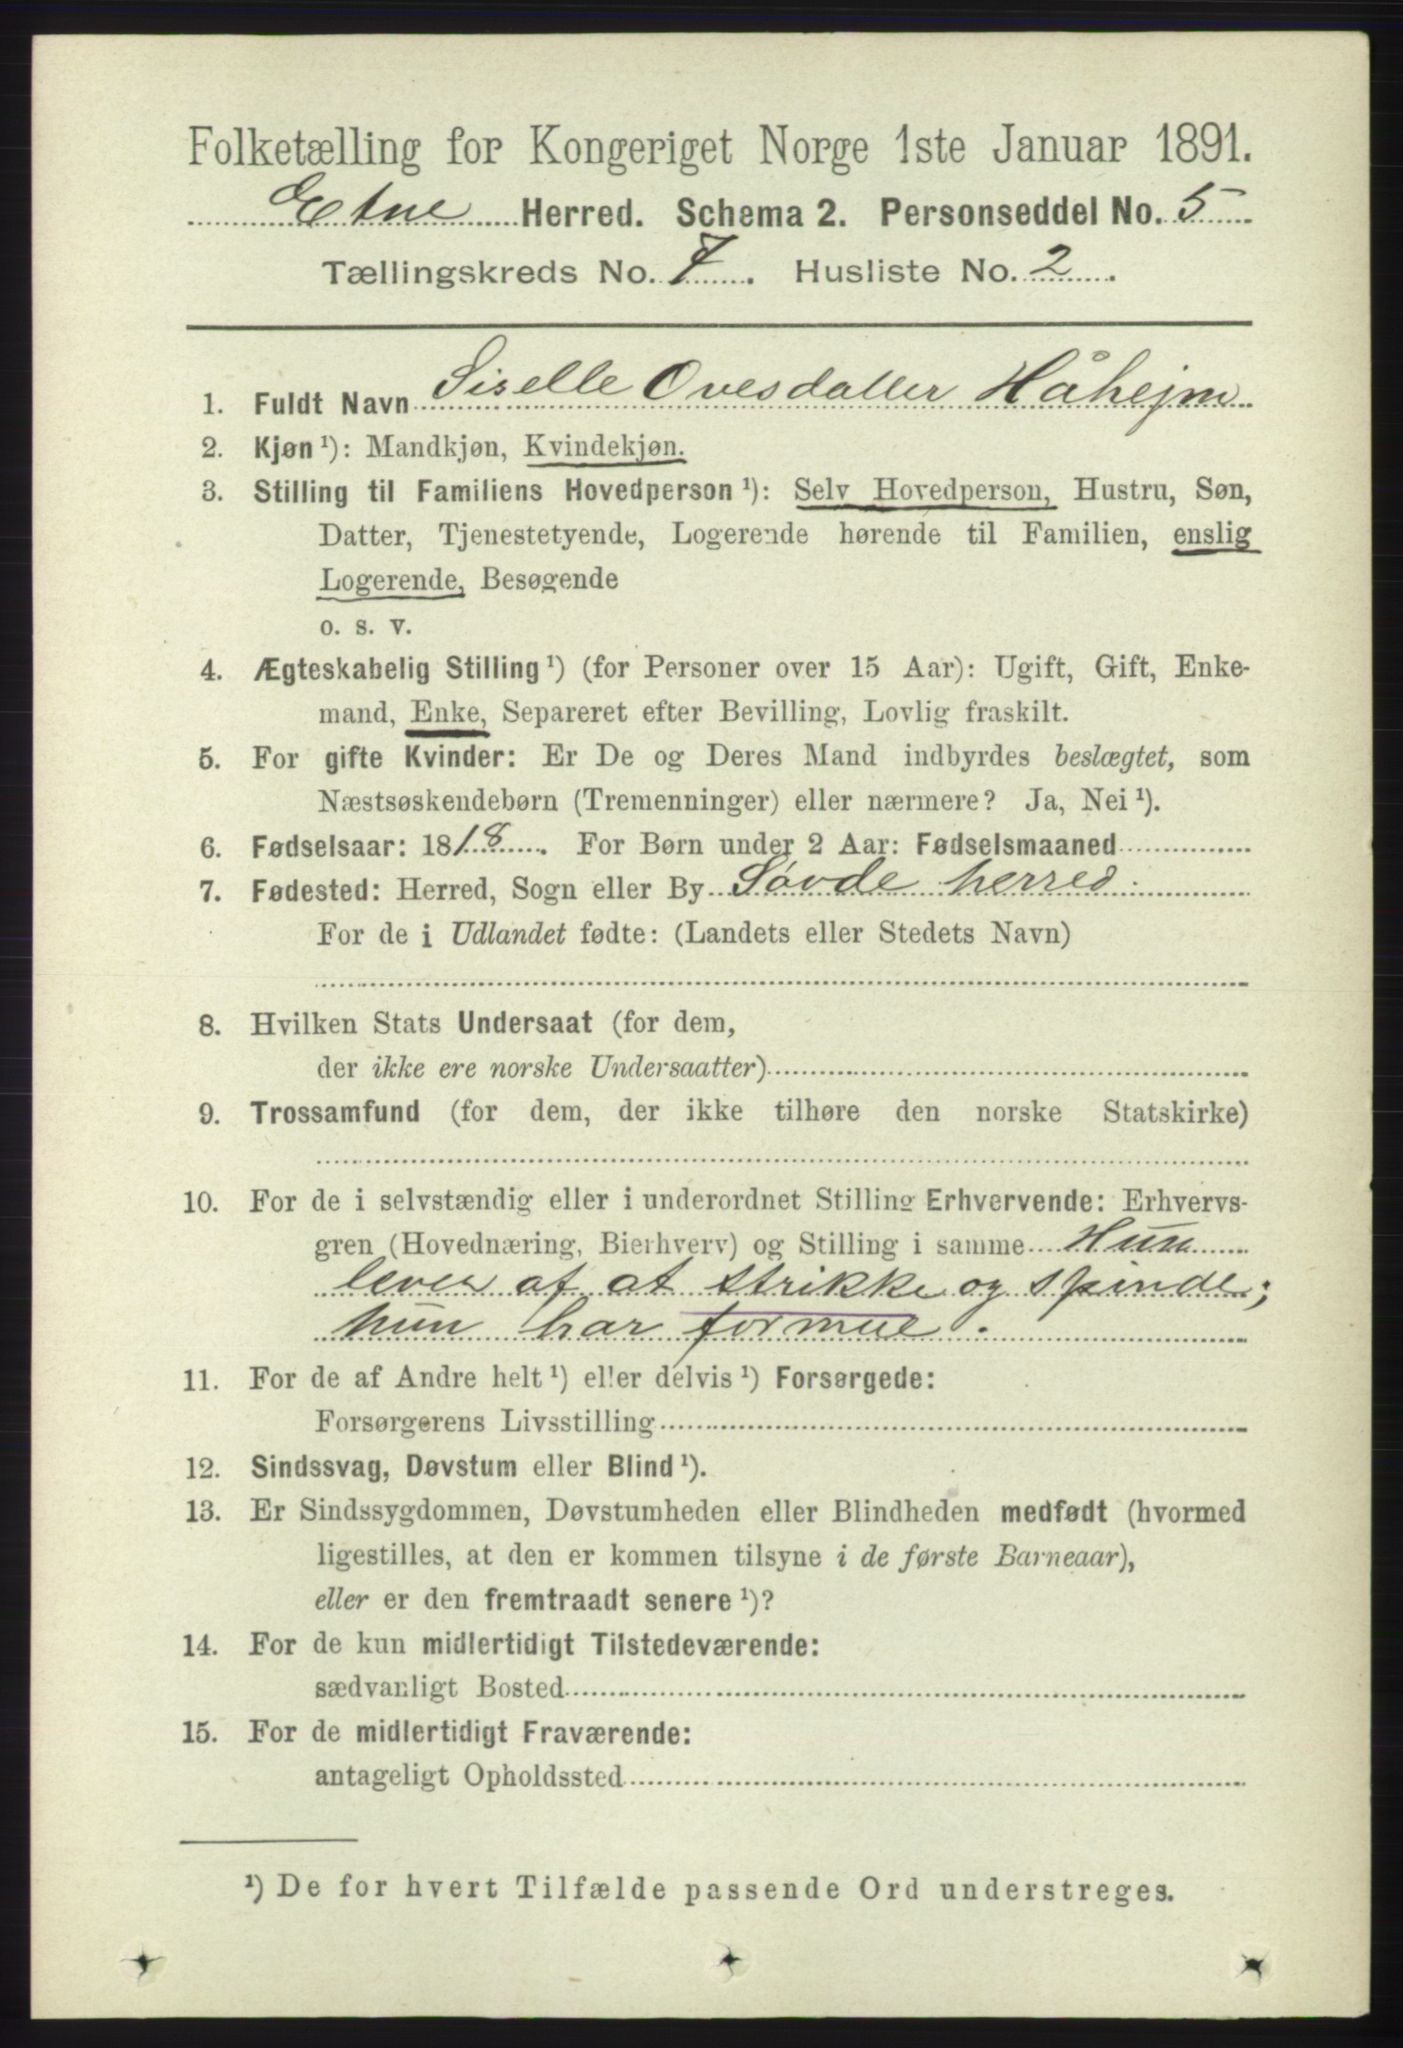 Folketælling for Kongeriget Norge 1ste Januar 1891.
Etne Herred. Schema 2. Personseddel No. 5
Tællingskreds No. 7. Husliste No. 2.
1. Fuldt Navn Siselle Ovesdatter Håhejm
2. Kjøn ¹): Mandkjøn, Kvindekjøn.
3. Stilling til Familiens Hovedperson ¹): Selv Hovedperson, Hustru, Søn,
Datter, Tjenestetyende, Logerende hørende til Familien, enslig
Logerende, Besøgende
o. s. v.
4. Ægteskabelig Stilling ¹) (for Personer over 15 Aar): Ugift, Gift, Enke-
mand, Enke, Separeret efter Bevilling, Lovlig fraskilt.
5. For gifte Kvinder: Er De og Deres Mand indbyrdes beslægtet, som
Næstsøskendebørn (Tremenninger) eller nærmere? Ja, Nei ¹).
6. Fødselsaar: 1818. For Børn under 2 Aar: Fødselsmaaned
7. Fødested: Herred, Sogn eller By Søvde herred.
For de i Udlandet fødte: (Landets eller Stedets Navn)
8. Hvilken Stats Undersaat (for dem,
der ikke ere norske Undersaatter)
9. Trossamfund (for dem, der ikke tilhøre den norske Statskirke)
10. For de i selvstændig eller i underordnet Stilling Erhvervende: Erhvervs-
gren (Hovednæring, Bierhverv) og Stilling i samme Hun
lever af at strikke og spinde;
hun har formue.
11. For de af Andre helt ¹) eller delvis ¹) Forsørgede:
Forsørgerens Livsstilling
12. Sindssvag, Døvstum eller Blind ¹).
13. Er Sindssygdommen, Døvstumheden eller Blindheden medfødt (hvormed
ligestilles, at den er kommen tilsyne i de første Barneaar),
eller er den fremtraadt senere ¹)?
14. For de kun midlertidigt Tilstedeværende:
sædvanligt Bosted
15. For de midlertidigt Fraværende:
antageligt Opholdssted
¹) De for hvert Tilfælde passende Ord understreges.